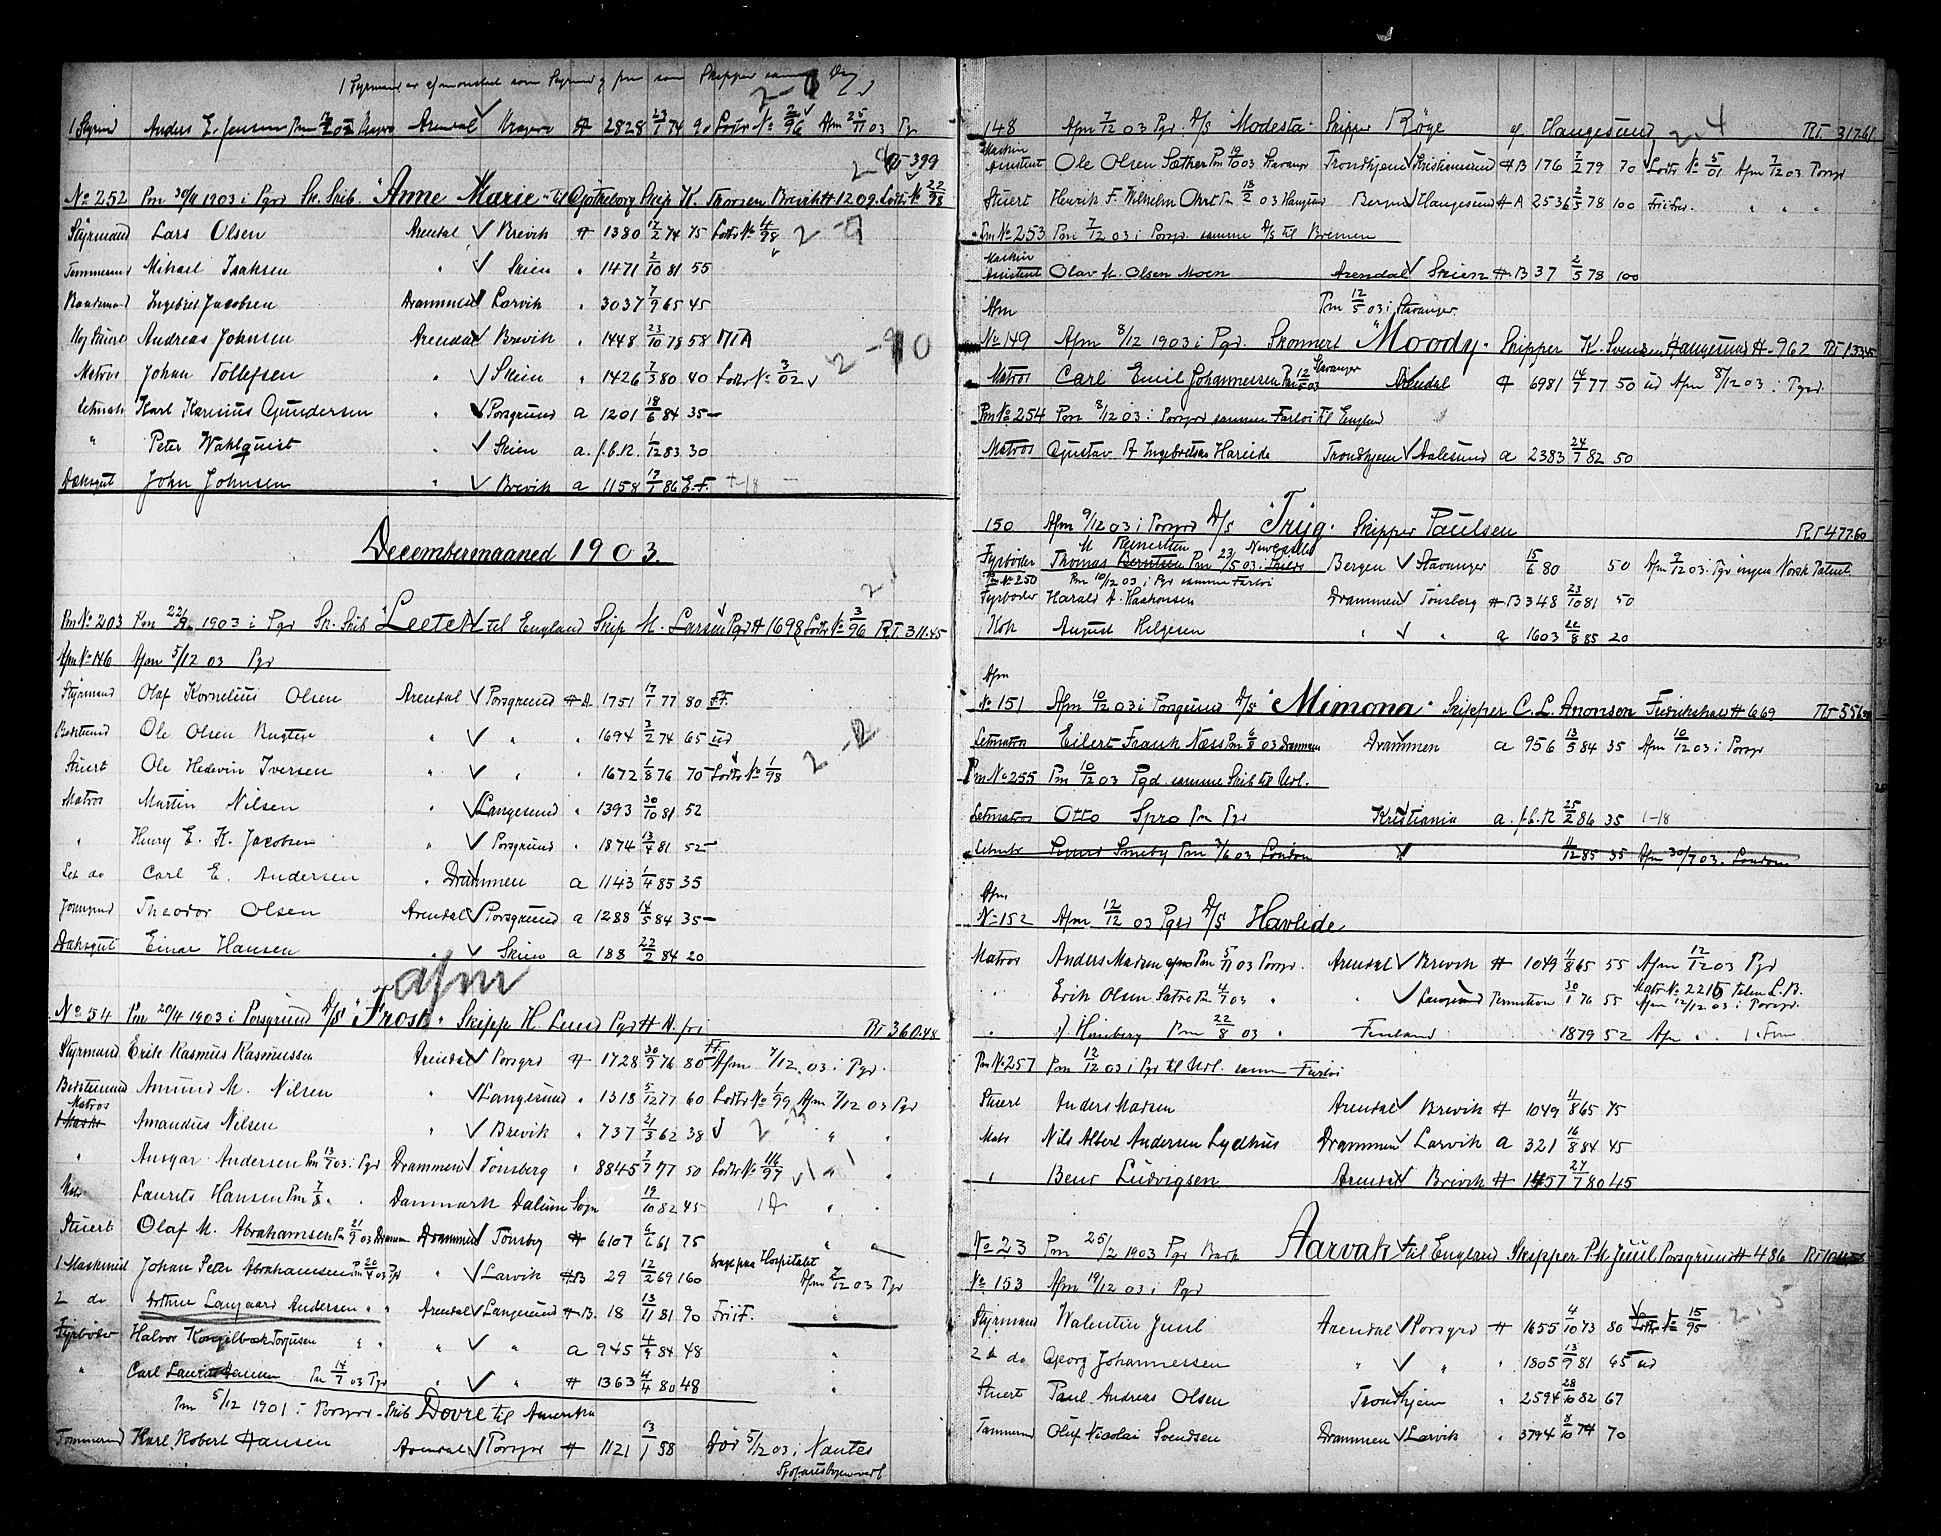 1 Styrmd Anders E. Jensen Pm Kragerø Arendal Kragerø A 2828 23/1 74 90 Lods No 2/96 Afm 25/11 03 Pgr
RT 399
No 252 Pm 30/11 1903 i Pgrd Sk. Skib. "Anne Marie" til Gøtheborg Skip K. Thorsen Brevik A 1209. Lods No 22/98
Styrmand Lars Olsen Arendal Brevik A 1380 12/2 74 75 Lods No 4/98
Tømmermd Mikael Isaksen " Skien " 1471 2/10 81 55
Ingebret Jacobsen Drammen Larvik " 3037 7/9 65 45
Andreas Johnsen Arendal Brevik " 1448 23/10 78 58
Matros Johan Tollefsen " Skien " 1426 7/3 80 40 Lods No 3/02
Letmatr Karl Karenius Gundersen " Porsgrund a 1201 18/6 84 35
" Peter Wahlquist " Skien a. f.b.R. 1/12 83 30
Dæksgut John Johnsen " Brevik a 1158 17/1 86 E.F.
Decembermaaned 1903.
Pm No 203 Pm 22/9 1903 i Pgr Sk. Skib "Leeten" til England Skip M. Larsen Pgr A 1698 Lods No 3/96 RT. 311.45
Afm No 146 Afm 5/12 03 Pgr
Styrmand Olaf Kornelius Olsen Arendal Porsgrund A A 1751 17/1 77 80 F.F.
Ole Olsen " " 1694 3/2 74 65 ud
Stuert Ole Hedevin Iversen " " 1672 1/8 76 70 Lods No 1/98
Matros Martin Nilsen " Langesund " 1393 30/10 81 52
" Henry E. K. Jacobsen " Porsgrund " 1874 13/4 81 52
Let do Carl E. Andersen " Drammen a 1143 1/4 85 35
Jomfrmd Theodor Olsen Arendal Porsgrund a 1288 14/5 84 35
Dæksgut Einar Hansen " Skien a 188 22/2 84 20
afm
No 54 Pm 20/4 1903 i Porsgrund D/S "Frost" Skipp H. Lund Pgr A N. fri RT 360.48
Styrmand Erik Rasmus Rasmussen Arendal Porsgrd A 1728 30/9 76 80 F.F. Afm 7/12. 03. i Pgr.
Bestemand Amund M. Nilsen " Langesund " 1318 5/12 77 60 Lods No 1/99 Afm 7/12 03 Pgr
Matros Amandus Nilsen " Brevik " 737 21/3 62 38 " "
" Ansgar Andersen Pm 13/7 03. i Pgr Drammen Tønsberg " 8845 7/7 77 50 Lods No 116/97 " "
Laurits Hansen Pm 7/8 " Danmark Dalum Sogn 19/10 82 45 " "
Stuert Olaf M. Abrahamsen Pm 21/9 03 Dramm Drammen Tønsberg A 6107 6/6 61 75 "
1 Maskinist Johan Peter Abrahamsen Pm 20/4 03 Pgr " Larvik A B 29 12/2 69 160 Hospitalet Afm 7/12 03 Pgr
2 do Arthur Langaard Andersen " " Arendal Langesund A B. 18 13/11 81 90 Frit F. "
Fyrbøder Halvor Torjusen " " " " a 945 4/9 84 48 "
" Carl Laurits Hansen Pm 14/7 03 Pgr " " A 1363 4/4 80 48 "
Pm 5/12 1901 i Porsgr. Skib Dovre til Amerika
Tømmermd Karl Robert Hansen Arendal Porsgr A 1121 13/1 58 Død 5/12 03 i Nantes
148 Afm 7/12 03 Pgr. D/S "Modesta" Skipper Røge af Haugesund RT. 317.61
Maskin
Assistent Ole Olsen Sæther Pm 19/10 03 Stavanger Trondhjem Kristiansund A B 176 7/2 79 70 Lods No 5/01 Afm 7/12 03 Porsgr
Stuert Henrik F. Wilhelm Ohrt Pm 18/2 03 Haugsund Bergen Haugesund A A 2536 2/5 78 100 " " "
Pm No 253 Pm 7/12 03 i Porsgr. samme D/S til Bremen
Maskin
Assistent Olav M. Olsen Moen Arendal Skien A B 37 2/5 78 100
Afm Pm 12/5 03 i Stavanger
No 149 Afm 8/12 1903 i Pgr. Skonnert "Moody" Skipper K. Svendsen Haugesund A. 962 RT 133.45
Matros Carl Emil Johannessen Pm 12/5 03 Stavanger Arendal A 6981 14/7 77 50 ud Afm 8/12 03 i Pgrd.
Pm No 254 Pm 8/12 03 i Porsgrd samme Fartøi til England
Matros Gustav A Ingebretsen Hareide Trondhjem Aalesund a 2383 24/7 82 50
150 Afm 9/12 03 i Porsgrd D/S "Tryg" Skipper Paulsen RT 477.60
Fyrbøder Thomas M Reinertsen Berntsen Pm 23/5 03. Newcastle Shields Bergen Stavanger 15/6 80 50 Afm 9/12 03 i Pgr ingen Norsk Patent.
Pm No 250 Pm 10/12 03 i Pgr samme Fartøi
Fyrbøder Harald A. Haakonsen Drammen Tønsberg A B 348 23/10 81 50
Kok August Helgesen " " a 1603 22/8 85 20
Afm
No 151 Afm 10/12 03 i Porsgrund D/S "Mimona" Skipper C. L. Anonsen Fredrikshald A 669 RT 556
Letmatros Eilert Frank Næss Pm 6/8 03 Drammen Drammen a 956 13/5 84 35 Afm 10/12 03 i Porsgr
Pm No 255 Pm 10/12 03 Pgd samme Skib til Udl.
Letmatros Otto Spro Pm Pgr Kristiania a. f.b.R 25/2 86 35
Letmatr Sigurd Smeby Pm 3/6 03 London 11/12 85 35 Afm 30/7 03 i London
Afm
No 152 Afm 12/12 03 Pgrd D/S Havlide
Matros Anders Madsen Pm 5/11 03 Porsgr. Arendal Brevik A 1049 11/8 65 55 Afm 12/12 03 Pgr
" Erik Olsen Pm 4/7 03 " " Langesund Permition 30/1 76 55 Matr No 2215 Afm 12/12 03 i Porsgr.
" Pm 22/8 03 " Finland 1879 52 Afm " "
Pm No 257 Pm 12/12 03 i Pgr til Udl. samme Fartøi
Stuert Anders Madsen Arendal Brevik A 1049 11/8 65 75
Matr Nils Albert Andersen Lydhus Drammen Larvik a 321 16/8 84 45
" Bent Ludvigsen Arendal Brevik A 1457 27/7 80 45
No 23 Pm 25/2 1903 Pgr Bark Aarvak til England Skipper P.M. Juul Porsgrund A 486
No 153 Afm 19/12 03 i Pgr
Styrmand Walentin Juul Arendal Porsgrd A 1655 4/10 73 80 Lods No 15/95
2 do Georg Johannessen " " " 1805 13/9 81 65 ud
Stuert Paul Andreas Olsen Trondhjem " 2594 28/10 82 67
Tømmermd Oluf Nicolai Svendsen Drammen Larvik " 3794 8/10 74 70